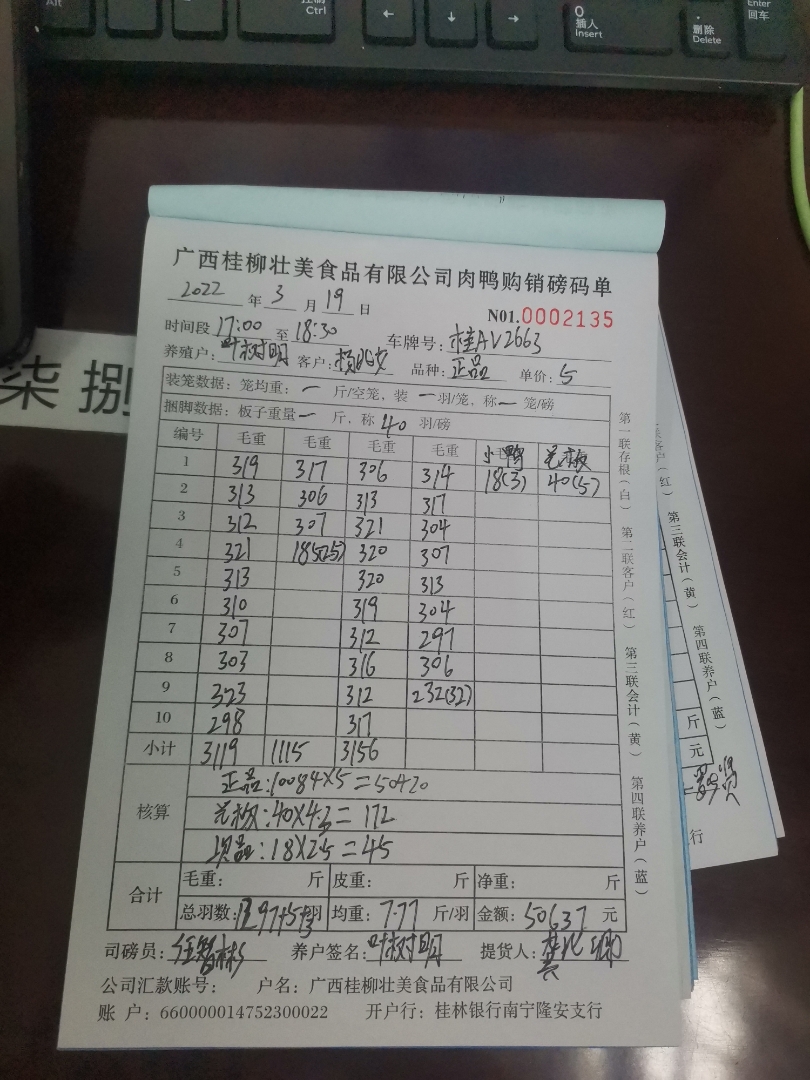 Alt
Ctrl
0
插入
Insert
.
删除
Delete
Enter
回车
柒 捌
广西桂柳壮美食品有限公司肉鸭购销磅码单
2022 年 3 月 19 日
N01.0002135
时间段 17:00 至 18:30 车牌号: 桂AV2663
养殖户: 叶树明 客户: 品种: 正品 单价: 5
装笼数据: 笼均重: 一 斤/空笼, 装 一 羽/笼, 称 一 笼/磅
捆脚数据: 板子重量 一 斤, 称 40 羽/磅
编号 毛重 毛重 毛重 毛重 小鸭 毛板
1 319 317 306 314 18(3) 40(5)
2 313 306 313 317
3 312 307 321 304
4 321 185(25) 320 307
5 313 320 313
6 310 319 304
7 307 312 297
8 303 316 306
9 323 312 232(32)
10 298 317
小计 3119 1115 3156
核算
正品:10084×5=50420
毛板:40×4.3=172
次品:18×2.5=45
合计
毛重: 斤 皮重: 斤 净重: 斤
总羽数: 羽 均重: 7.77 斤/羽 金额: 50637 元
司磅员: 任智彬 养户签名: 叶树明 提货人:
公司汇款账号: 户名: 广西桂柳壮美食品有限公司
账 户: 660000014752300022 开户行: 桂林银行南宁隆安支行
第一联存根(白) 第二联客户(红) 第三联会计(黄) 第四联养户(蓝)
第三联会计(黄) 第四联养户(蓝)
斤
元
行